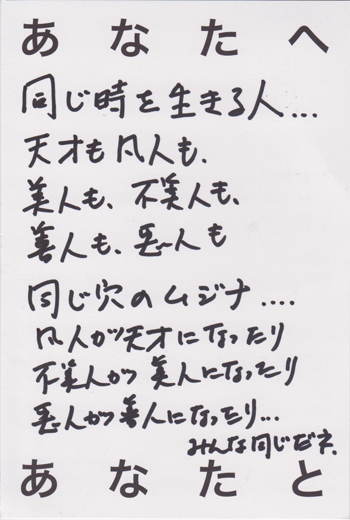 あなたへ
同じ時を生きる人...
天才も凡人も、
美人も、不美人も、
善人も、悪人も
同じ穴のムジナ....
凡人が天才になったり
不美人が美人になったり
悪人が善人になったり...
みんな同じだネ、
あなたと